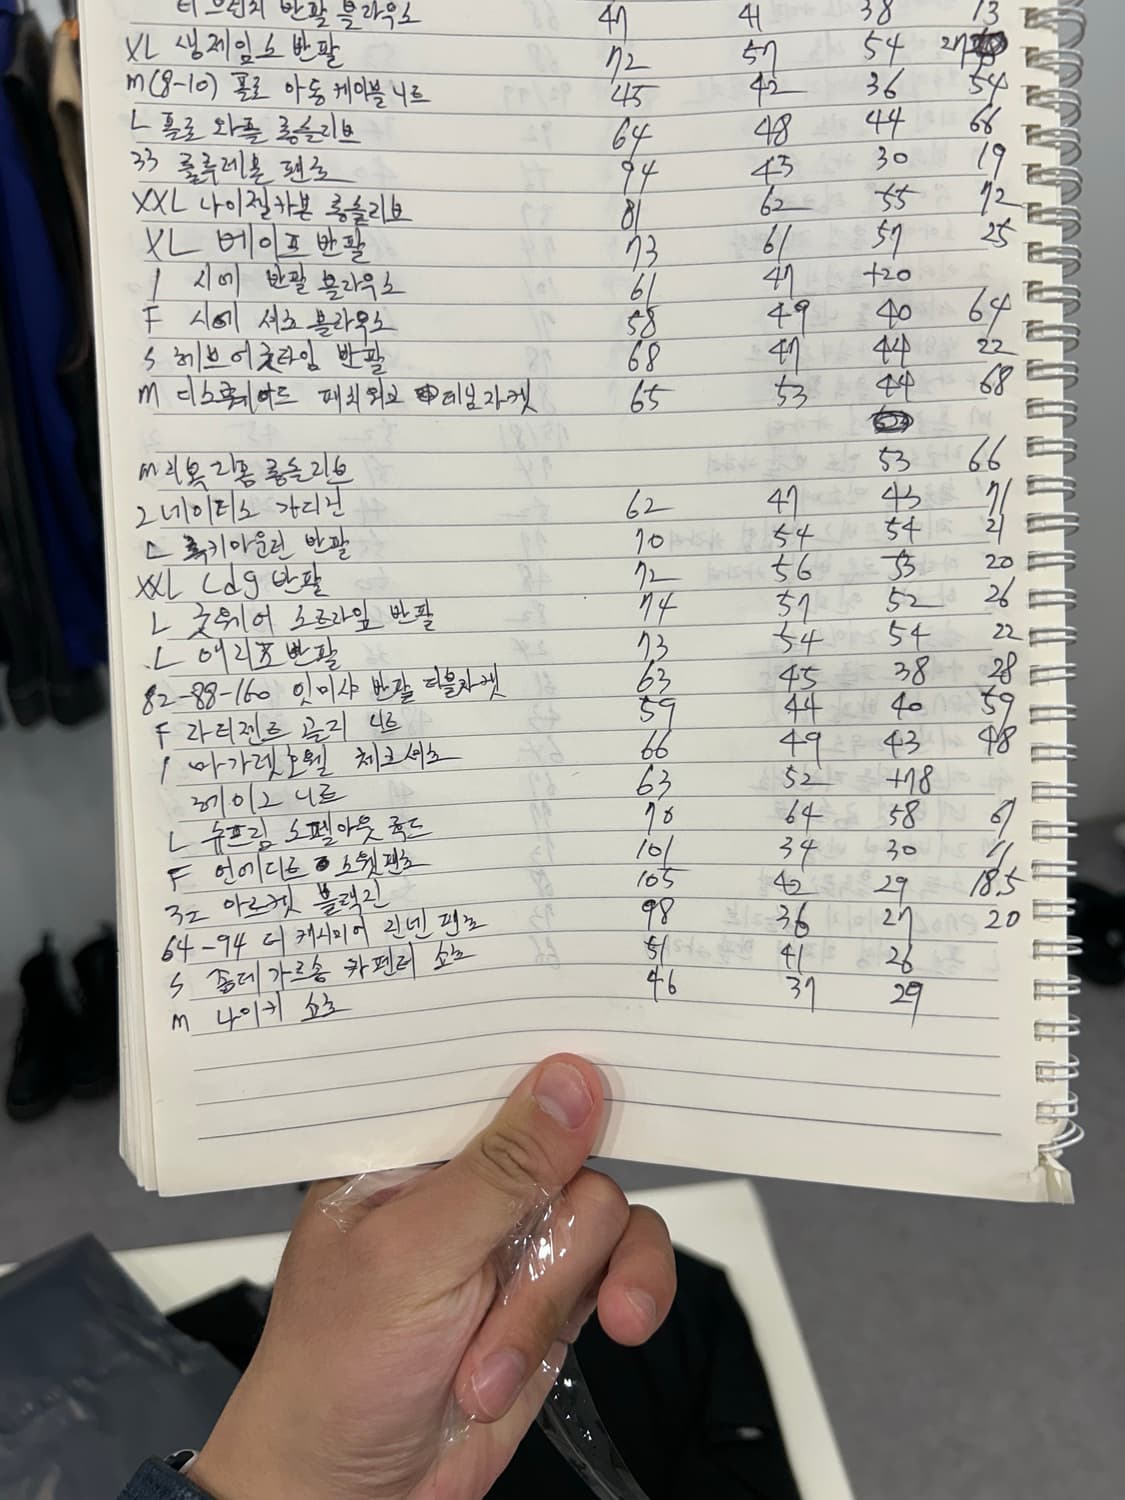 티 브런치 반팔 블라우스 47 41 38 13
XL 생제임스 반팔 72 57 54 27
m(8-10) 폴로 아동 케이블 니트 45 42 36 54
L 폴로 와플 롱슬리브 64 48 44 66
33 룰루레몬 팬츠 94 43 30 19
XXL 나이젤카본 롱슬리브 81 62 55 72
XL 베이프 반팔 73 61 57 25
1 시에 반팔 블라우스 61 47 +20
F 시에 셔츠 블라우스 58 49 40 64
S 헤브어굿타임 반팔 68 47 44 22
m 디스퀘어드 패치워크 데님자켓 65 53 44 68
m 리복 리폼 롱슬리브 53 66
2 네이티스 가디건 62 47 43 71
L 키아운린 반팔 70 54 54 21
XXL Ldg 반팔 72 56 53 20
L 굿웨어 소프라임 반팔 74 57 52 26
L 애리조 반팔 73 54 54 22
82-88-160 잇미샤 반팔 더블자켓 63 45 38 28
F 라티젠트 골지 니트 59 44 40 59
1 마가렛호웰 체크셔츠 66 49 43 48
헤이그 니트 63 52 +78
L 슈프림 스펠아웃 후드 70 64 58 67
F 언에디트 스웻팬츠 101 34 30 11
32 아르켓 블랙진 105 42 29 18.5
64-94 더 캐시미어 린넨 팬츠 98 36 27 20
S 꼼데가르송 카펜터 쇼츠 51 41 26
m 나이키 쇼츠 46 37 29